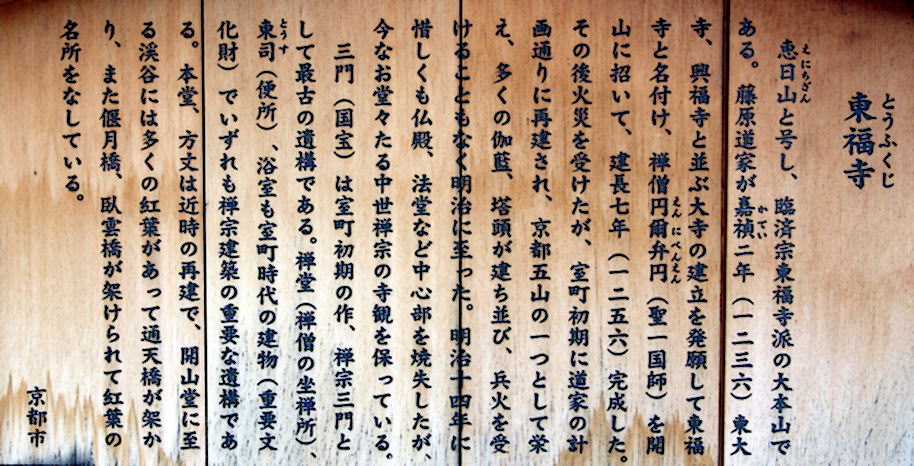 東福寺
とうふくじ
恵日山と号し、臨済宗東福寺派の大本山で
えにちざん
ある。藤原道家が嘉禎二年(一二三六)東大
かてい
寺、興福寺と並ぶ大寺の建立を発願して東福
寺と名付け、禅僧円爾弁円(聖一国師)を開
えんにべんえん
山に招いて、建長七年(一二五六)完成した。
その後火災を受けたが、室町初期に道家の計
画通りに再建され、京都五山の一つとして栄
え、多くの伽藍、塔頭が建ち並び、兵火を受
けることもなく明治に至った。明治十四年に
惜しくも仏殿、法堂など中心部を焼失したが、
今なお堂々たる中世禅宗の寺観を保っている。
三門(国宝)は室町初期の作、禅宗三門と
して最古の遺構である。禅堂(禅僧の坐禅所)、
東司(便所)、浴室も室町時代の建物(重要文
とうす
化財)でいずれも禅宗建築の重要な遺構であ
る。本堂、方丈は近時の再建で、開山堂に至
る渓谷には多くの紅葉があって通天橋が架か
り、また偃月橋、臥雲橋が架けられて紅葉の
名所をなしている。
京都市